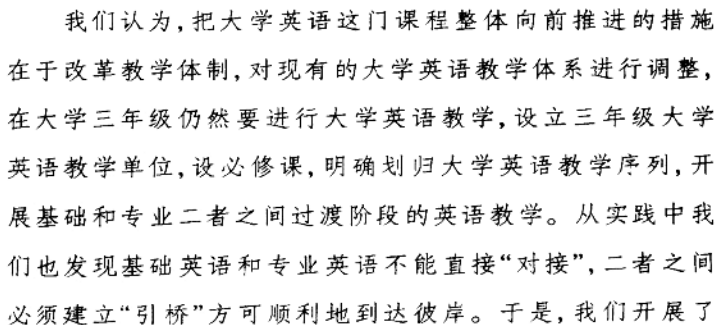 我们认为,把大学英语这门课程整体向前推进的措施
在于改革教学体制,对现有的大学英语教学体系进行调整,
在大学三年级仍然要进行大学英语教学,设立三年级大学
英语教学单位,设必修课,明确划归大学英语教学序列,开
展基础和专业二者之间过渡阶段的英语教学。从实践中我
们也发现基础英语和专业英语不能直接“对接”,二者之间
必须建立“引桥”方可顺利地到达彼岸。于是,我们开展了